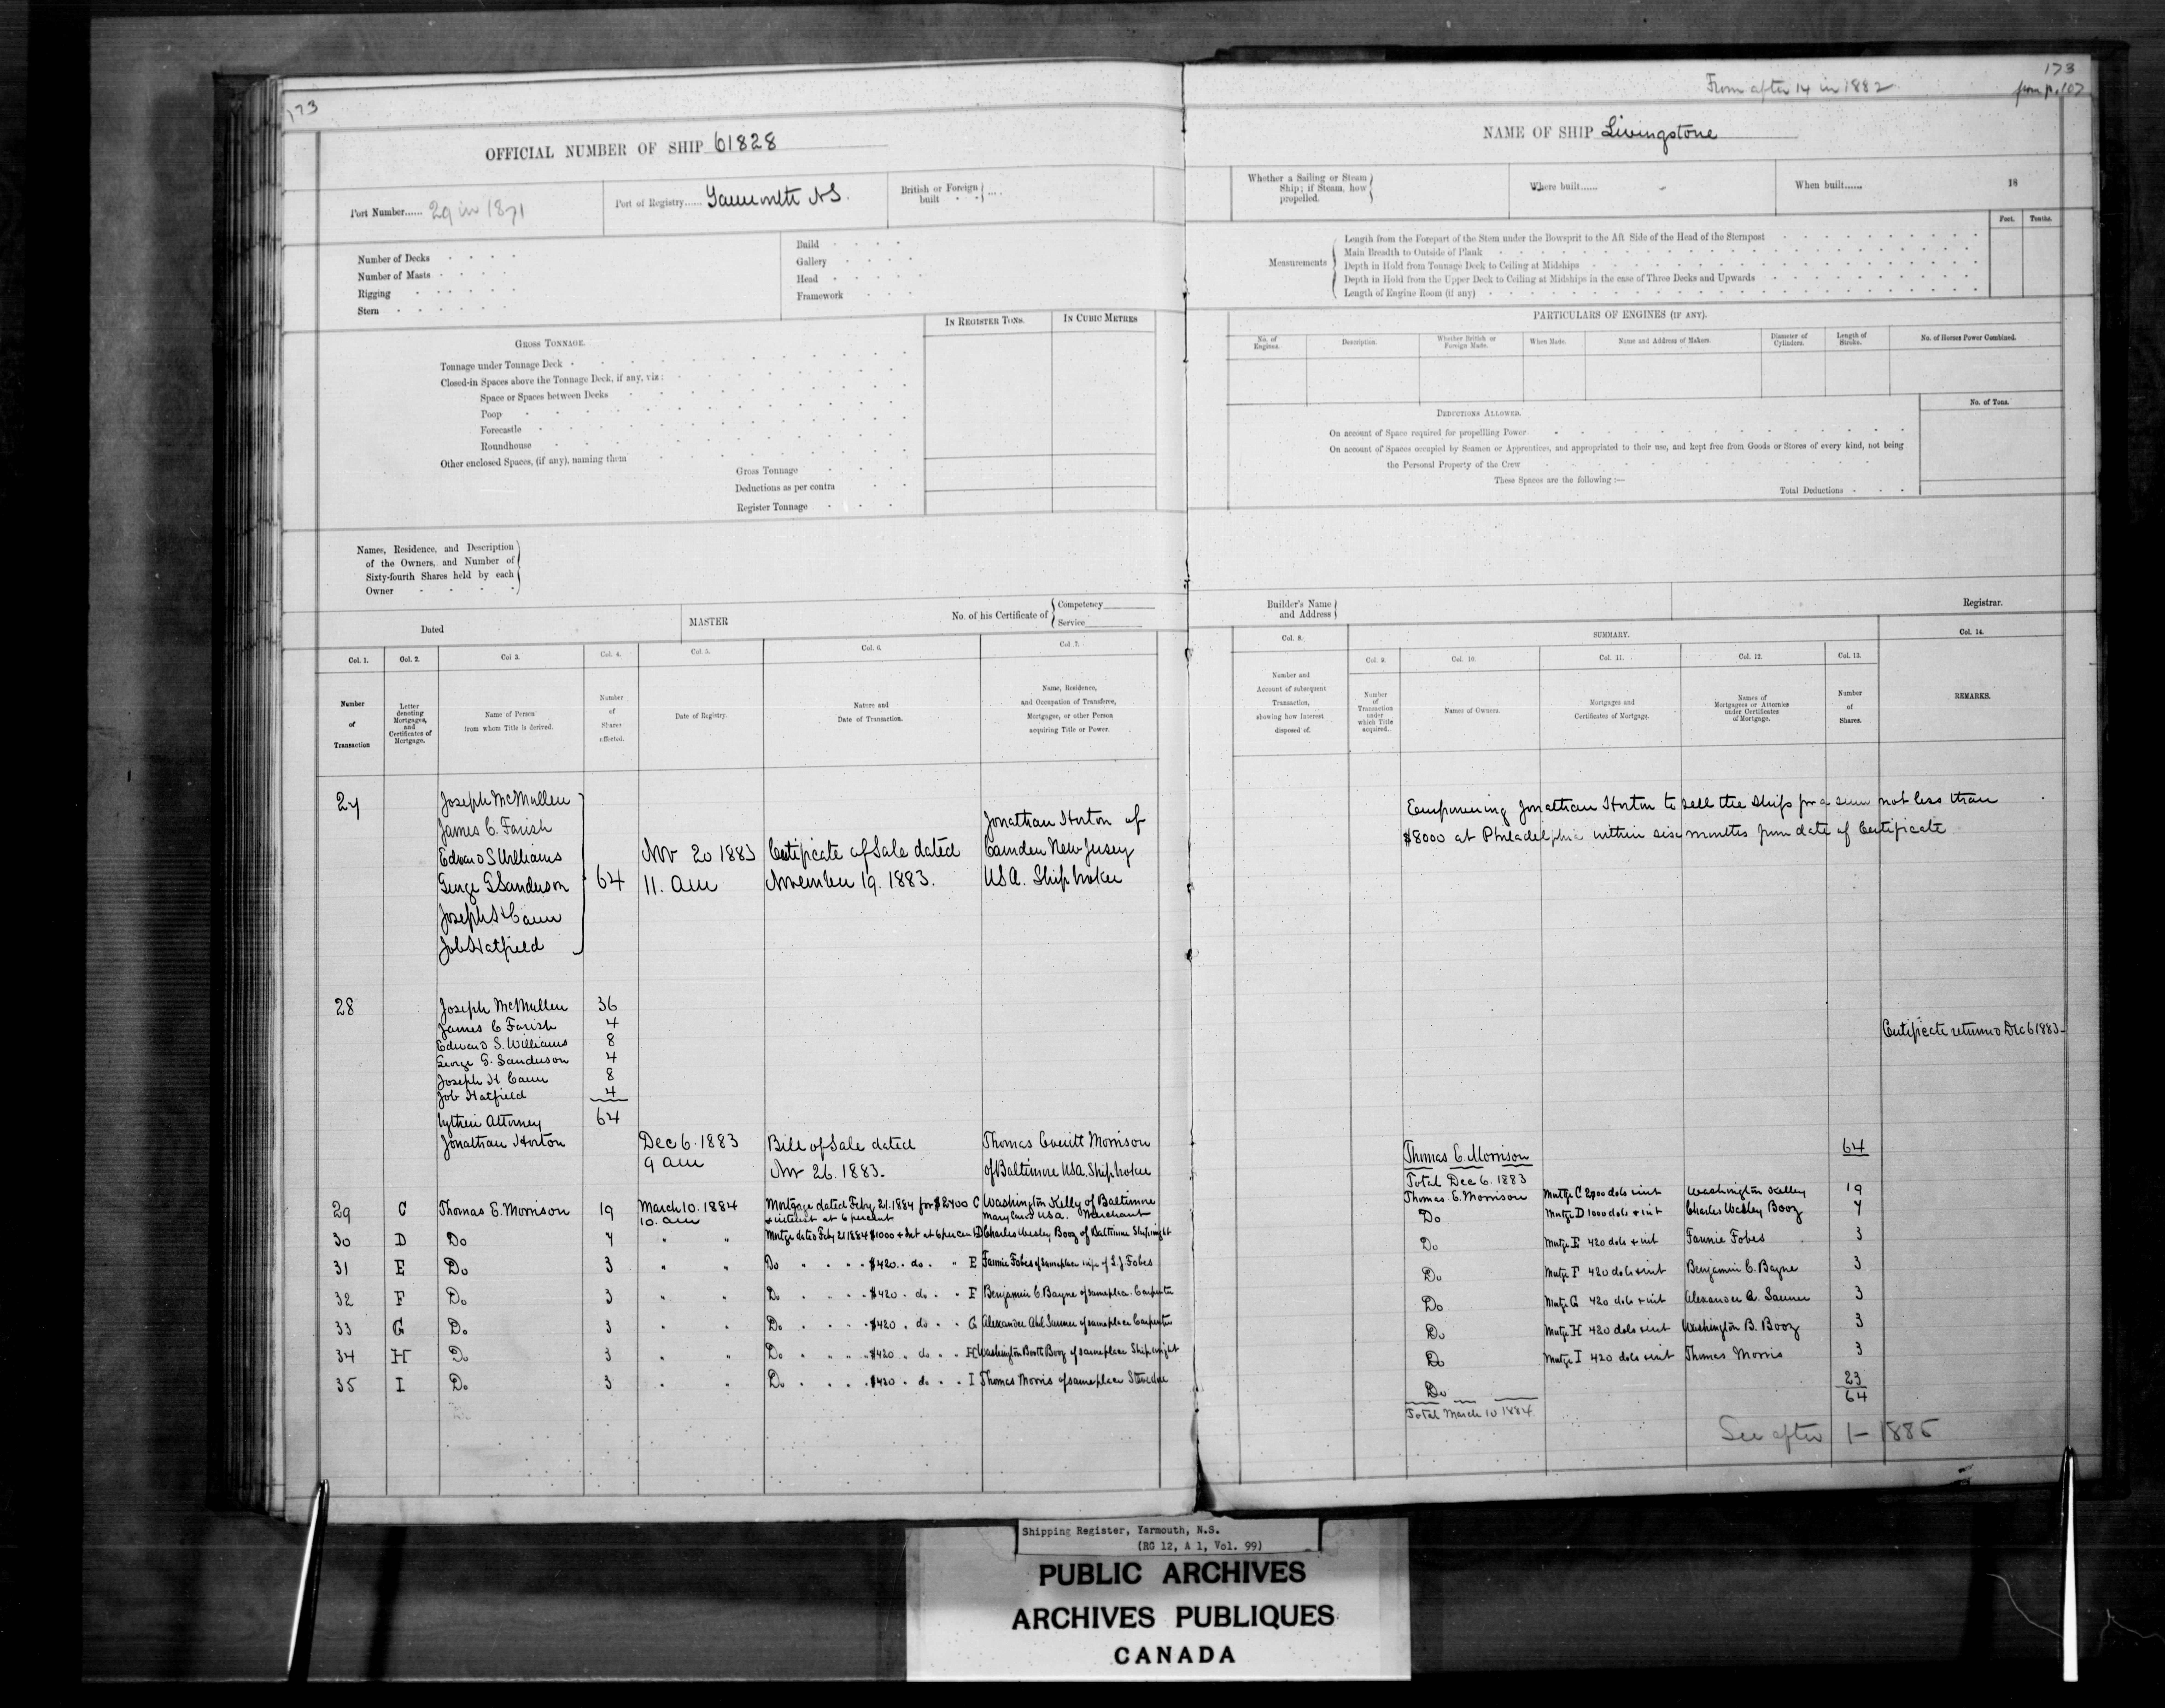 173
OFFICIAL NUMBER OF SHIP 61828
Port Number...... 29 in 1871
Port of Registry...... Yarmouth NS.
British or Foreign built ....
Number of Decks
Number of Masts
Rigging
Stern
Build
Gallery
Head
Framework
GROSS TONNAGE.
IN REGISTER TONS.
IN CUBIC METRES
Tonnage under Tonnage Deck
Closed-in Spaces above the Tonnage Deck, if any, viz:
Space or Spaces between Decks
Poop
Forecastle
Roundhouse
Other enclosed Spaces, (if any), naming them
Gross Tonnage
Deductions as per contra
Register Tonnage
Names, Residence, and Description
of the Owners, and Number of
Sixty-fourth Shares held by each
Owner
Dated
MASTER
No. of his Certificate of
Competency
Service
Col. 1. Col. 2. Col 3. Col. 4. Col. 5. Col. 6. Col. 7.
Number of Transaction
Letter denoting Mortgages, and Certificates of Mortgage.
Name of Person from whom Title is derived.
Number of Shares affected.
Date of Registry.
Nature and Date of Transaction.
Name, Residence, and Occupation of Transferee, Mortgagee, or other Person acquiring Title or Power.
27
Joseph McMullen
James C. Farish
Edward S Williams
George G Sanderson
Joseph H Cann
Job Hatfield
64
Nov 20 1883
11. am
Certificate of Sale dated
November 19. 1883.
Jonathan Horton of
Camden New Jersey
USA. Ship broker
28
Joseph McMullen 36
James C Farish 4
Edward S. Williams 8
George G. Sanderson 4
Joseph H Cann 8
Job Hatfield 4
by their Attorney 64
Jonathan Horton
Dec 6. 1883
9 am
Bill of Sale dated
Nov 26. 1883.
Thomas Everitt Morrison
of Baltimore USA. Ship broker
29 C Thomas E. Morrison 19 March 10. 1884 Mortgage dated Feby 21. 1884 for $2700 C Washington Kelly of Baltimore
10. am + interest at 6 percent Maryland USA. Merchant
30 D Do 7 " " Mortge dated Feby 21 1884 $1000 + Int at 6 percen D Charles Wesley Booz of Baltimore Shipwright
31 E Do 3 " " Do $420 . do . E Fannie Fobes of same place wife of S. J Fobes
32 F Do 3 " " Do $420 . do . F Benjamin C Bayne of same place. Carpenter
33 G Do 3 " " Do $420 . do . G Alexander Abel Saumer of same place Carpenter
34 H Do 3 " " Do $420 . do . H Washington Booth Booz of same place Shipwright
35 I Do 3 " " Do $420 . do . I Thomas Morris of same place Stevedore
From after 14 in 1882
173
from p. 107
NAME OF SHIP Livingstone
Whether a Sailing or Steam
Ship; if Steam, how
propelled.
Where built......
When built......
18
Feet. Tenths.
Measurements
Length from the Forepart of the Stem under the Bowsprit to the Aft Side of the Head of the Sternpost
Main Breadth to Outside of Plank
Depth in Hold from Tonnage Deck to Ceiling at Midships
Depth in Hold from the Upper Deck to Ceiling at Midships in the case of Three Decks and Upwards
Length of Engine Room (if any)
PARTICULARS OF ENGINES (IF ANY).
No. of Engines.
Description.
Whether British or Foreign Made.
When Made.
Name and Address of Makers.
Diameter of Cylinders.
Length of Stroke.
No. of Horses Power Combined.
DEDUCTIONS ALLOWED.
No. of Tons.
On account of Space required for propelling Power
On account of Spaces occupied by Seamen or Apprentices, and appropriated to their use, and kept free from Goods or Stores of every kind, not being
the Personal Property of the Crew
These Spaces are the following :—
Total Deductions
Builder's Name
and Address
Registrar.
SUMMARY.
Col. 8. Col. 9. Col. 10. Col. 11. Col. 12. Col. 13. Col. 14.
Number and Account of subsequent Transaction, showing how Interest disposed of.
Number of Transaction under which Title acquired.
Names of Owners.
Mortgages and Certificates of Mortgage.
Names of Mortgagees or Attornies under Certificates of Mortgage.
Number of Shares.
REMARKS.
Empowering Jonathan Horton to sell the Ship for a sum not less than
$8000 at Philadelphia within six months from date of Certificate
Certificate returned Dec 6 1883
Thomas E. Morrison 64
Total Dec 6. 1883
Thomas E. Morrison Mortge C 2700 dols + int Washington Kelley 19
Do Mortge D 1000 dols + int Charles Wesley Booz 7
Do Mortge E 420 dols + int Fannie Fobes 3
Do Mortge F 420 dols + int Benjamin C. Bayne 3
Do Mortge G 420 dols + int Alexander A. Saumer 3
Do Mortge H 420 dols + int Washington B. Booz 3
Do Mortge I 420 dols + int Thomas Morris 3
Do 23
64
Total March 10 1884
See after 1 - 1885
Shipping Register, Yarmouth, N.S.
(RG 12, A 1, Vol. 99)
PUBLIC ARCHIVES
ARCHIVES PUBLIQUES
CANADA